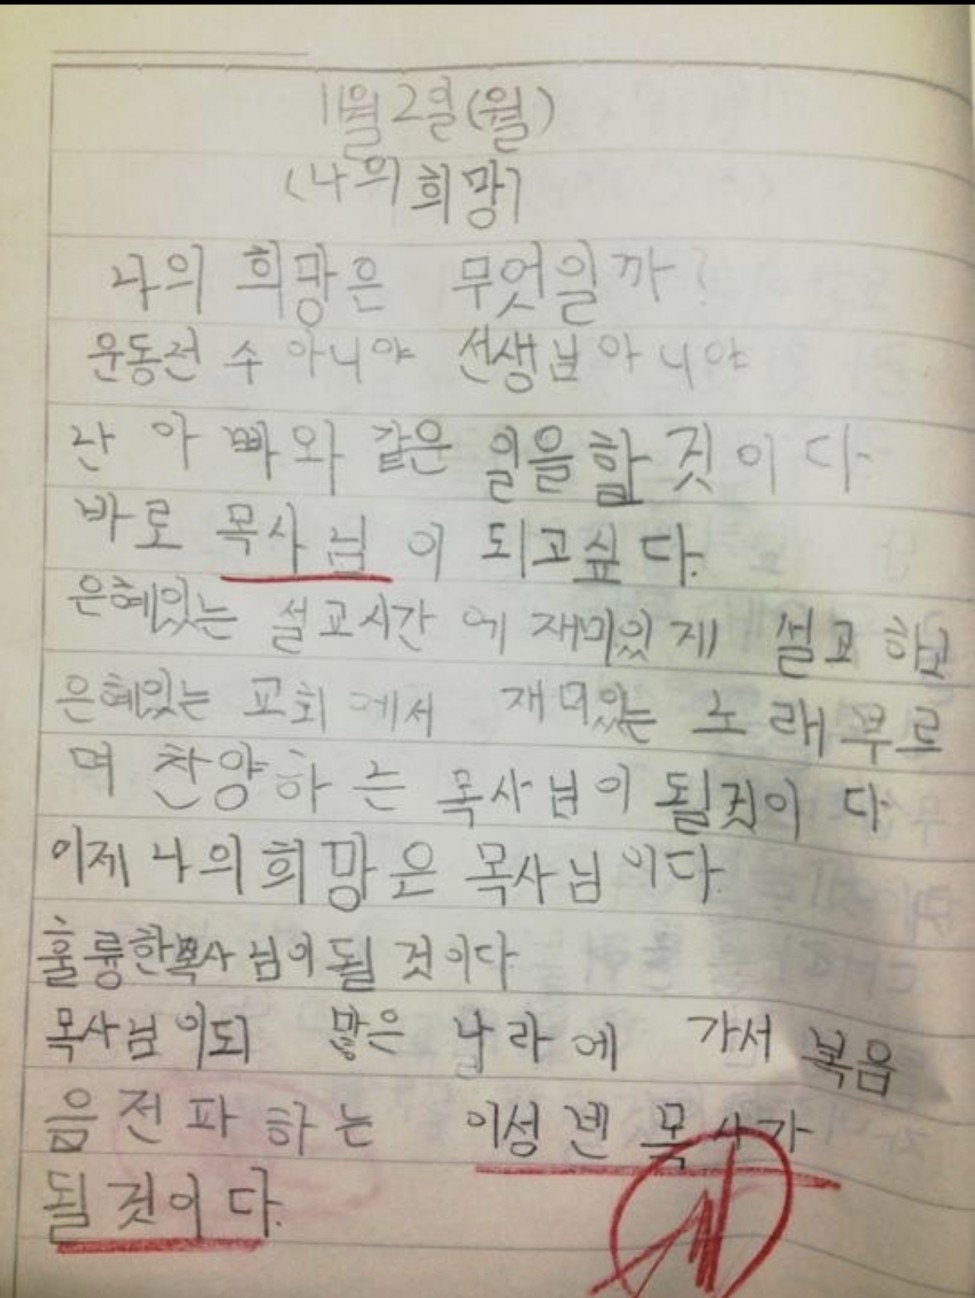 11월 2일(월)
(나의 희망)
나의 희망은 무엇일까?
운동선수 아니야 선생님 아니야
난 아빠와 같은 일을 할 것이다.
바로 목사님이 되고싶다.
은혜있는 설교시간에 재미있게 설교하고
은혜있는 교회에서 재미있는 노래부르
며 찬양하는 목사님이 될것이다
이제 나의 희망은 목사님이다.
훌륭한 목사님이 될 것이다
목사님이되 많은 나라에 가서 복음
음 전파하는 이성벧 목사가
될 것이다.